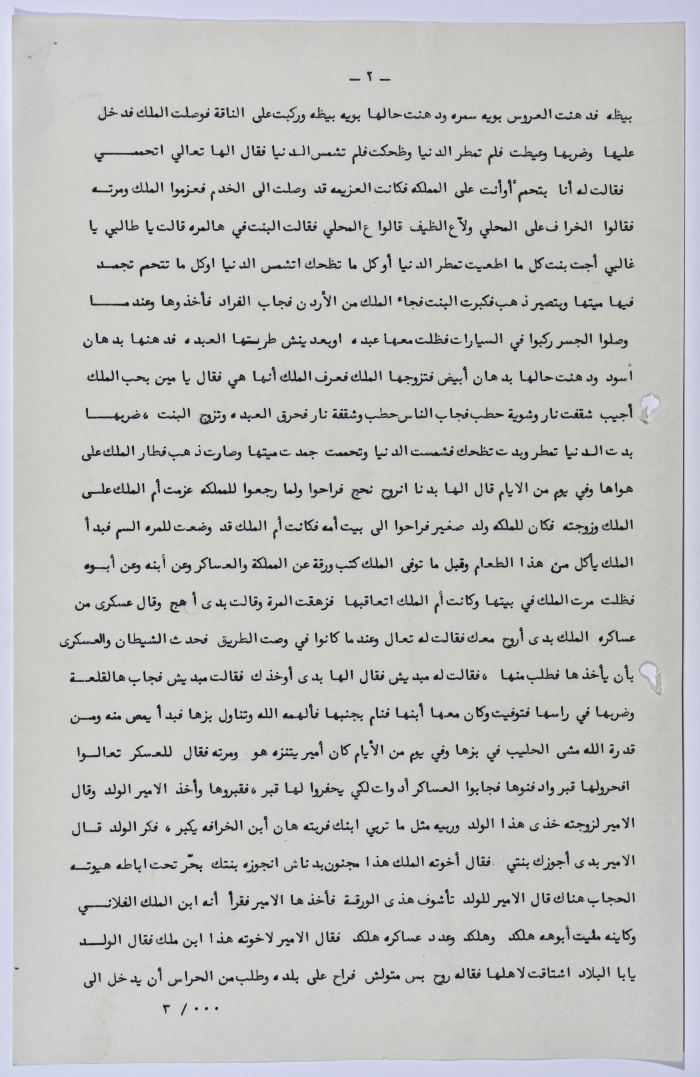 — ٢ —
بيظه فدهنت العروس بويه سمره ودهنت حالها بويه بيظه وركبت على الناقة فوصلت الملك فدخل
عليها وضربها وعيطت فلم تمطر الدنيا وظحكت فلم تشمس الدنيا فقال الها تعالي اتحممي
فقالت له أنا بتحمم أوأنت على المملكه فكانت العزيمه قد وصلت الى الخدم فعزموا الملك ومرته
فقالوا الخراف على المحلي ولاّ ع الظيف قالوا ع المحلي فقالت البنت في هالمره قالت يا طالبي يا
غالبي أجت بنت كل ما اطعيت تمطر الدنيا أو كل ما تظحك اتشمس الدنيا اوكل ما تتحمم تجمد
فيها ميتها وبتصير ذهب فكبرت البنت فجاء الملك من الأردن فجاب الفراد فأخذوها وعندما
وصلوا الجسر ركبوا في السيارات فظلت معها عبده اوبعدينش طريستها العبده فدهنها بدهان
أسود ودهنت حالها بدهان أبيض فتزوجها الملك فعرف الملك أنها هي فقال يا مين بحب الملك
أجيب شقفت نار وشوية حطب فجاب الناس حطب وشقفة نار فحرق العبده وتزوج البنت ، ضربها
بدت الدنيا تمطر وبدت تظحك فشمست الدنيا وتحممت جمدت ميتها وصارت ذهب فطار الملك على
هواها وفي يوم من الايام قال الها بدنا انروح نحج فراحوا ولما رجعوا للمملكه عزمت أم الملك على
الملك وزوجته فكان للملكه ولد صغير فراحوا الى بيت أمه فكانت أم الملك قد وضعت للمره السم فبدأ
الملك يأكل من هذا الطعام وقبل ما توفى الملك كتب ورقة عن المملكة والعساكر وعن أبنه وعن أبوه
فظلت مرت الملك في بيتها وكانت أم الملك اتعاقبها فزهقت المرة وقالت بدى أهج وقال عسكرى من
عساكره الملك بدى أروح معك فقالت له تعال وعندما كانوا في وصت الطريق فحدث الشيطان والعسكرى
بأن يأخذها فطلب منها ، فقالت له مبديش فقال الها بدى أوخذك فقالت مبديش فجاب هالقلعة
وضربها في راسها فتوفيت وكان معها أبنها فنام بجنبها فألهمه الله وتناول بزها فبدأ يمص منه ومن
قدرة الله مشى الحليب في بزها وفي يوم من الأيام كان أمير يتنزه هو ومرته فقال للعسكر تعالوا
افحرولها قبر وادفنوها فجابوا العساكر أدوات لكي يحفروا لها قبر ، فقبروها وأخذ الامير الولد وقال
الامير لزوجته خذى هذا الولد وربيه مثل ما تربي ابنك فربته هان أبن الخرافه يكبر ، فكر الولد قال
الامير بدى أجوزك بنتي فقال أخوته الملك هذا مجنون بدناش انجوزه بنتك بحّر تحت اباطه هيوته
الحجاب هناك قال الامير للولد تأشوف هذى الورقة فأخذها الامير فقرأ أنه ابن الملك الفلاني
وكاينه ملبيت أبوهه هلكد وهلكد وعدد عساكره هلكد فقال الامير لاخوته هذا ابن ملك فقال الولد
يابا البلاد اشتاقت لاهلها فقاله روح بس متولش فراح على بلده وطلب من الحراس أن يدخل الى
٣ / ٠٠٠